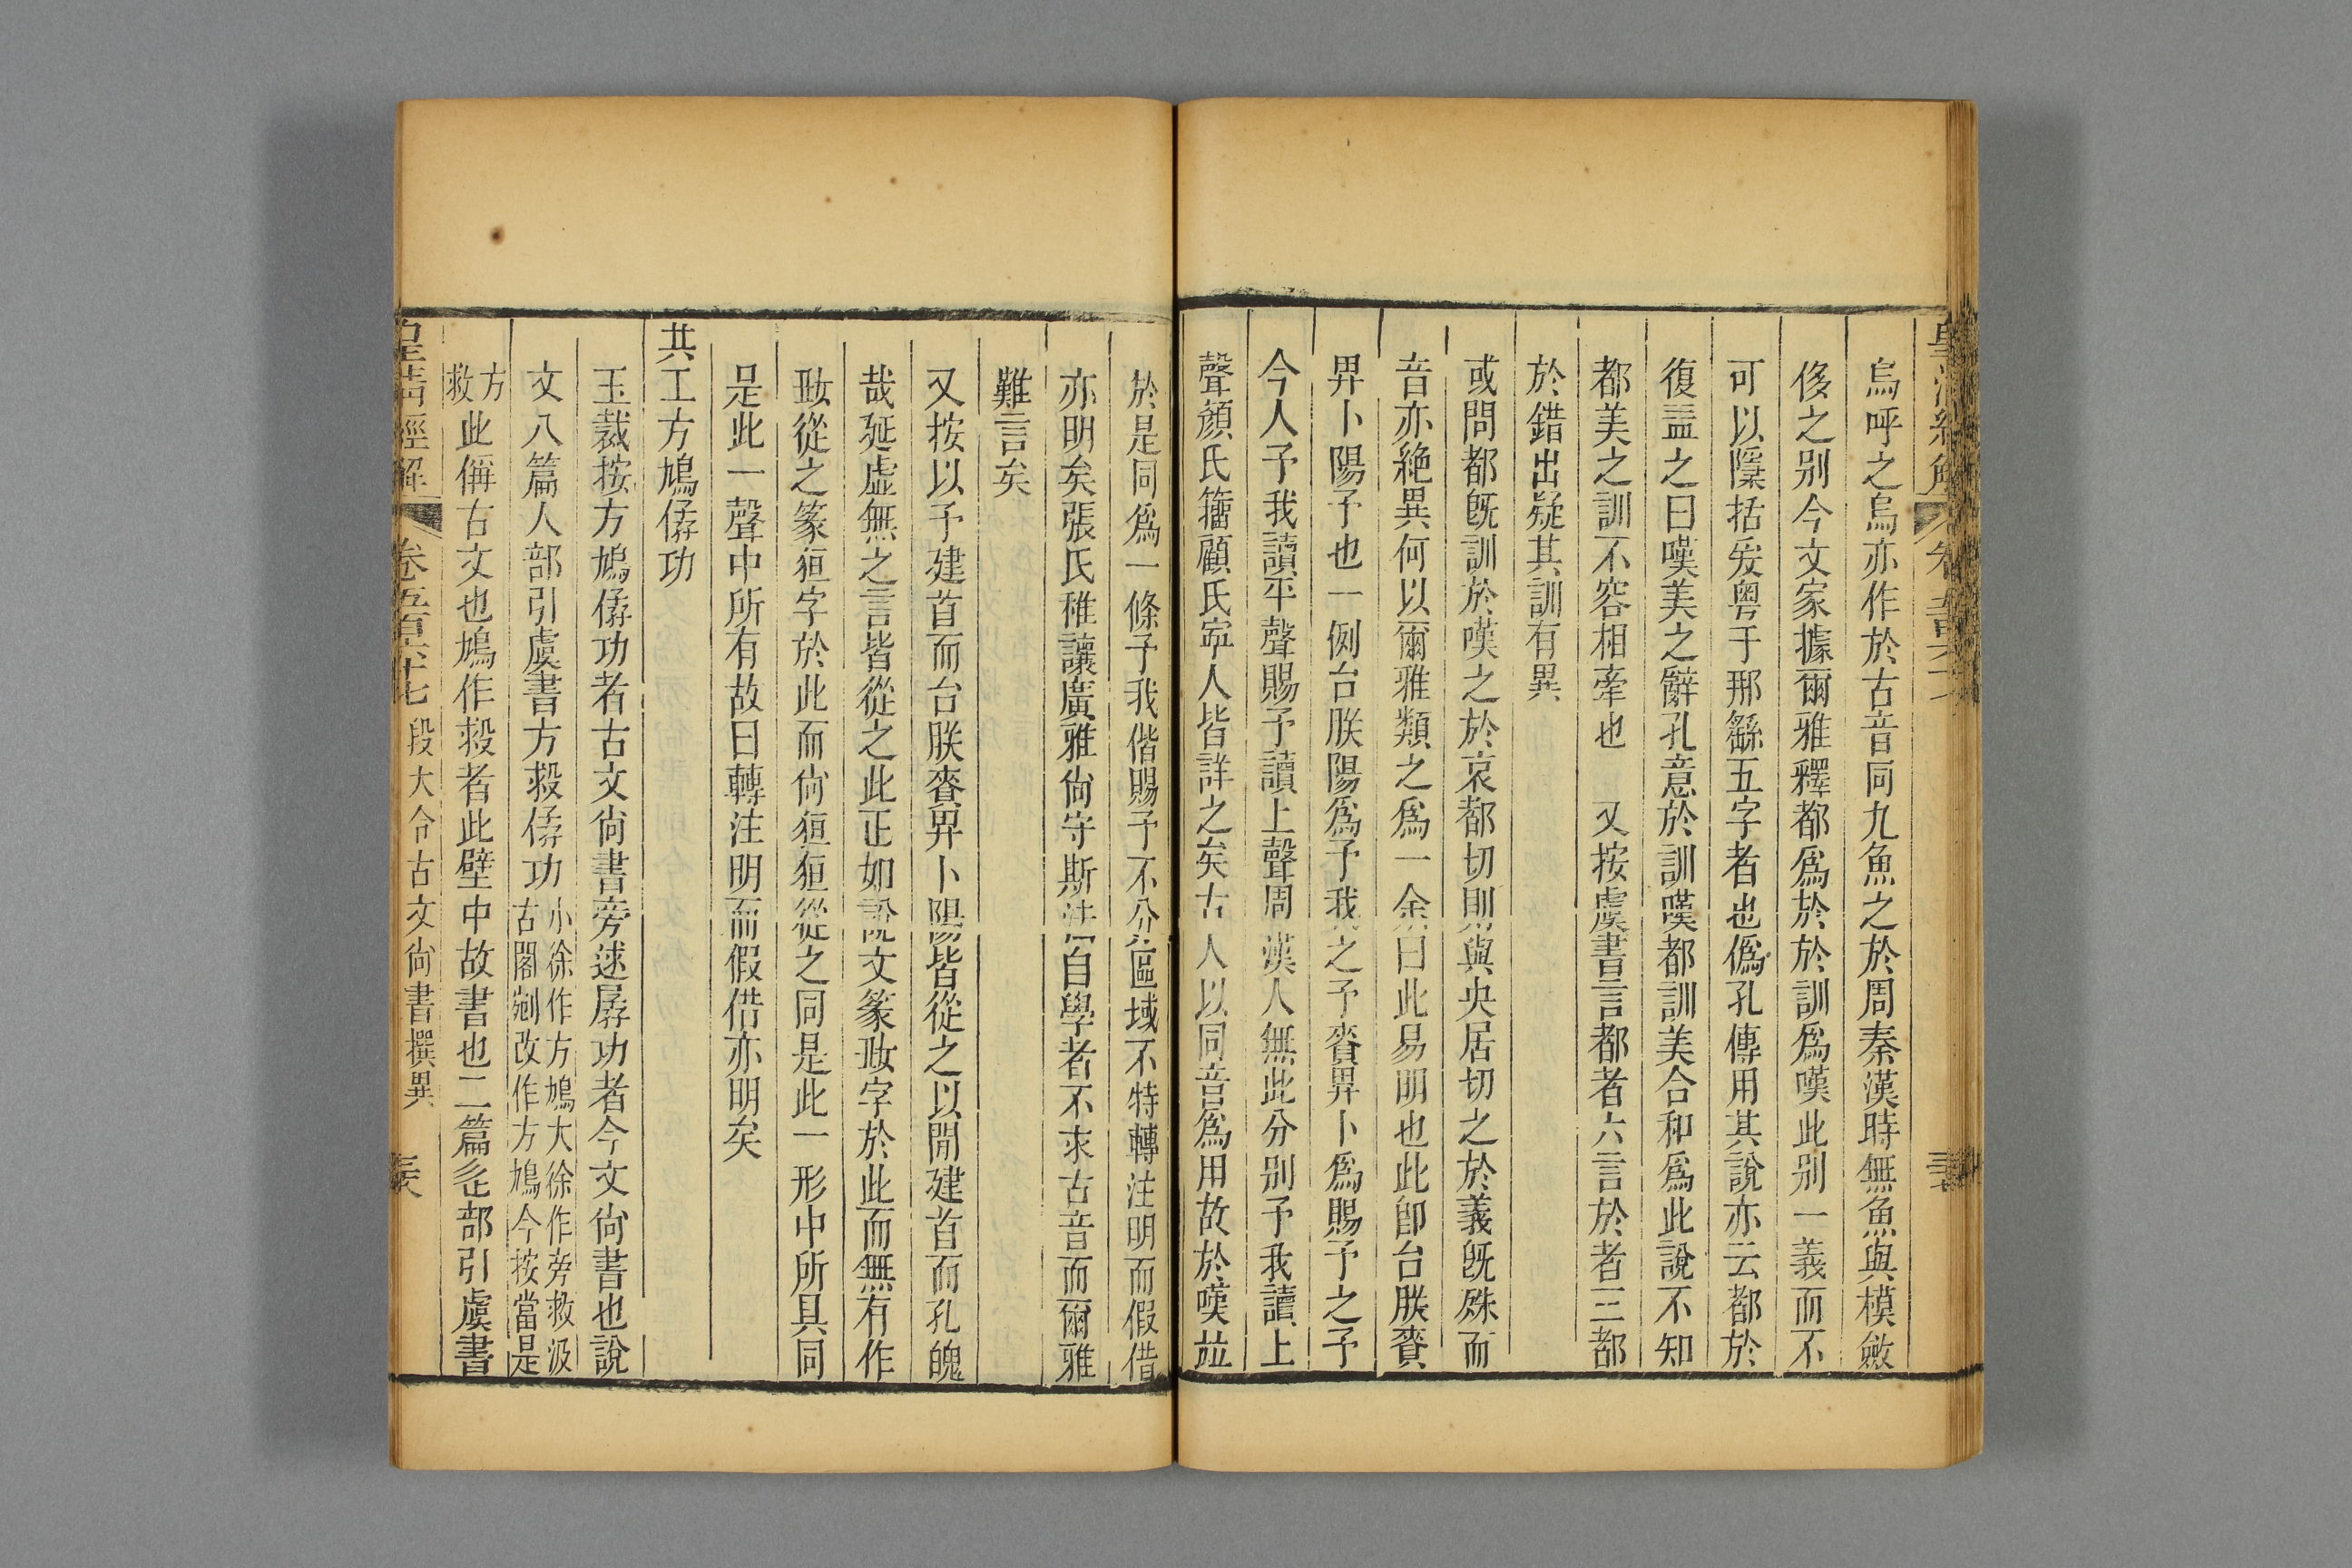 烏呼之烏亦作於古音同九魚之於周秦漢時無魚與模斂
侈之別今文家據爾雅釋都爲於於訓爲嘆此別一義而不
可以隱括爰粤于那繇五字者也僞孔傳用其說亦云都於
復益之曰嘆美之辭孔意於訓嘆都訓美合和爲此說不知
都美之訓不容相牽也　又按虞書言都者六言於者三都
於錯出疑其訓有異
或問都旣訓於嘆之於哀都切則與央居切之於義旣殊而
音亦絶異何以爾雅類之爲一余曰此易明也此卽台朕賚
畀卜陽予也一例台朕陽爲予我之予賚畀卜爲賜予之予
今人予我讀平聲賜予讀上聲周漢人無此分别予我讀上
聲顏氏籒顧氏寍人皆詳之矣古人以同音爲用故於嘆竝
於是同爲一條予我偕賜予不分區域不特轉注明而假借
亦明矣張氏稚讓廣雅尙守斯法自學者不求古音而爾雅
難言矣
又按以予建首而台朕賚畀卜陽皆從之以開建首而孔魄
哉延虛無之言皆從之此正如說文篆㺵字於此而無有作
㺵從之篆狟字於此而尙狟狟從之同是此一形中所具同
是此一聲中所有故曰轉注明而假借亦明矣
共工方鳩僝功
玉裁按方鳩僝功者古文尙書旁逑孱功者今文尙書也說
文八篇人部引虞書方救僝功小徐作方鳩大徐作旁救汲
古閣剜改作方鳩今按當是
方
救此偁古文也鳩作救者此壁中故書也二篇辵部引虞書
皇清經解　卷五百六十七　段大令古文尙書撰異　三六